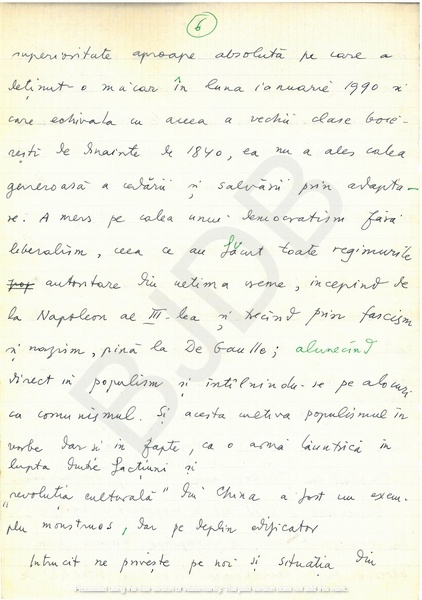 6
superioritate aproape absolută pe care a
deținut-o măcar în luna ianuarie 1990 și
care echivala cu aceea a vechii clase boie-
rești de înainte de 1840, ea nu a ales calea
generoasă a cedării și salvării prin adapta-
re. A mers pe calea unui democratism fără
liberalism, ceea ce au făcut toate regimurile
autoritare din ultima vreme, începînd de
la Napoleon al III-lea și trecînd prin fascism
și nazism, pînă la De Gaulle; alunecînd
direct în populism și întîlnindu-se pe alocuri
cu comunismul. Și acesta cultiva populismul în
vorbe dar și în fapte, ca o armă lăuntrică în
lupta dintre facțiuni și
„revoluția culturală" din China a fost un exem-
plu monstruos, dar pe deplin edificator
Întrucît ne privește pe noi și situația din
BJDB